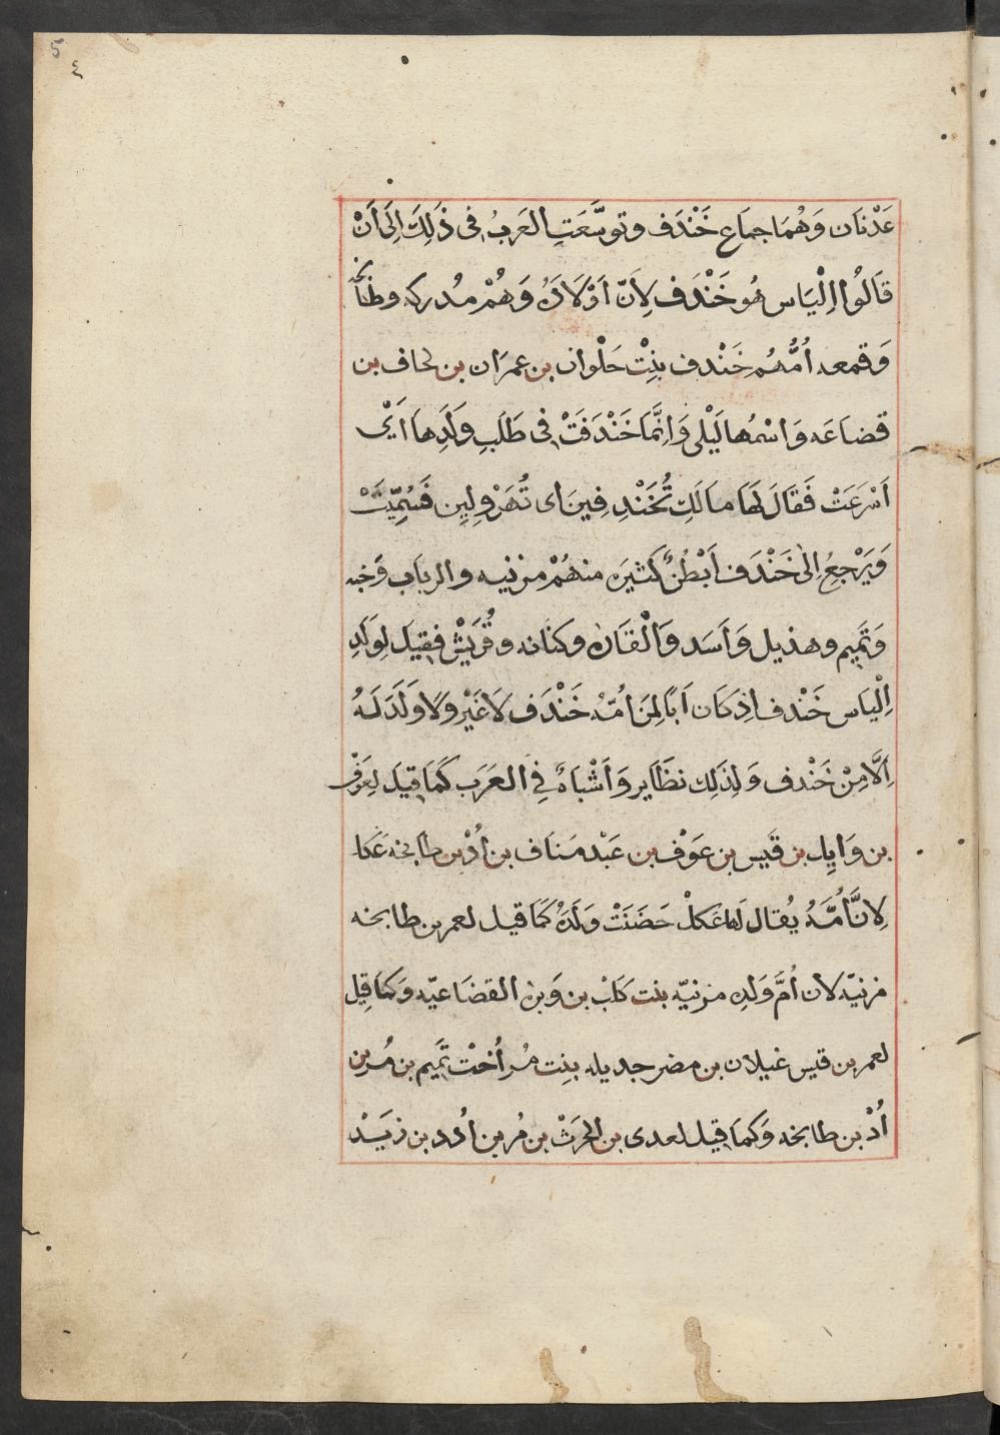 5
٤
عَدْنَان وَهُمَا جمَاع خَنْدَف وتوسَّعَتِ العَرَبُ فى ذَلِكَ اِلَى اَنْ
قَالُوا اِلْيَاس هُو خَنْدَف لِاَنّ اَوْلَادَهُ وَهُمْ مُدركه وطَابخَه
وَقمعه اُمُّهُم خَنْدف بنِْت حَلْوان بن عمرَان بن لحاف بن
قضاعَه وَاسْمُها لَيْلى وَاِنَّمَا خَنْدَفَتْ فى طَلَبِ وَلَدِها اَىْ
اَسْرَعَتْ فَقَالَ لَهَا مالَكِ تُخَنْدِفِينَ اى تُهَرْوِلِين فَسُمِّيَتْ
وَيَرْجعُ اِلىٰ خَنْدَف اَبْطُنٌ كَثيرَه منهُمْ مزنيه والرباب وَضبه
وَتَميم وهذيل وَاَسَد وَالْقَارَه وكنَانه وقُرَيْشْ فقِيلَ لِوَلَدِ
اِلْيَاس خَنْدف اِذ كَان اَبًا لِمَن اُمّهُ خَنْدَف لَا غَيْر وَلَا وَلَدَ لَهُ
اِلَّا مِنْ خَنْدف وَلِذَلِك نظَاير وَاَشْبَاهٌ فِى العَرَب كَمَا قِيلَ لِعَوْف
بن وَايِل بن قَيس بن عَوْف بن عَبْد مَناف بن اُدّ بن طابخه عَكل
لِانَّ اُمّهُ يُقال لَها عَكلْ حَضَنَتْ وَلَدَهُ كَمَا قيل لعمر بن طابخه
مزنيّه لان اُمَّ وَلَدِه مزنيّه بنت كَلبْ بن وَبرَه القضَاعيّه وَكمَا قِيل
لعمر بن قيس غيلان بن مضر جديله بنِت مُر اُختْ تَميم بن مُر بن
اُدْ بن طابخه وَكمَا قِيل لعدى بن الحرَثْ بن مُر بن اُدد بن زيَد